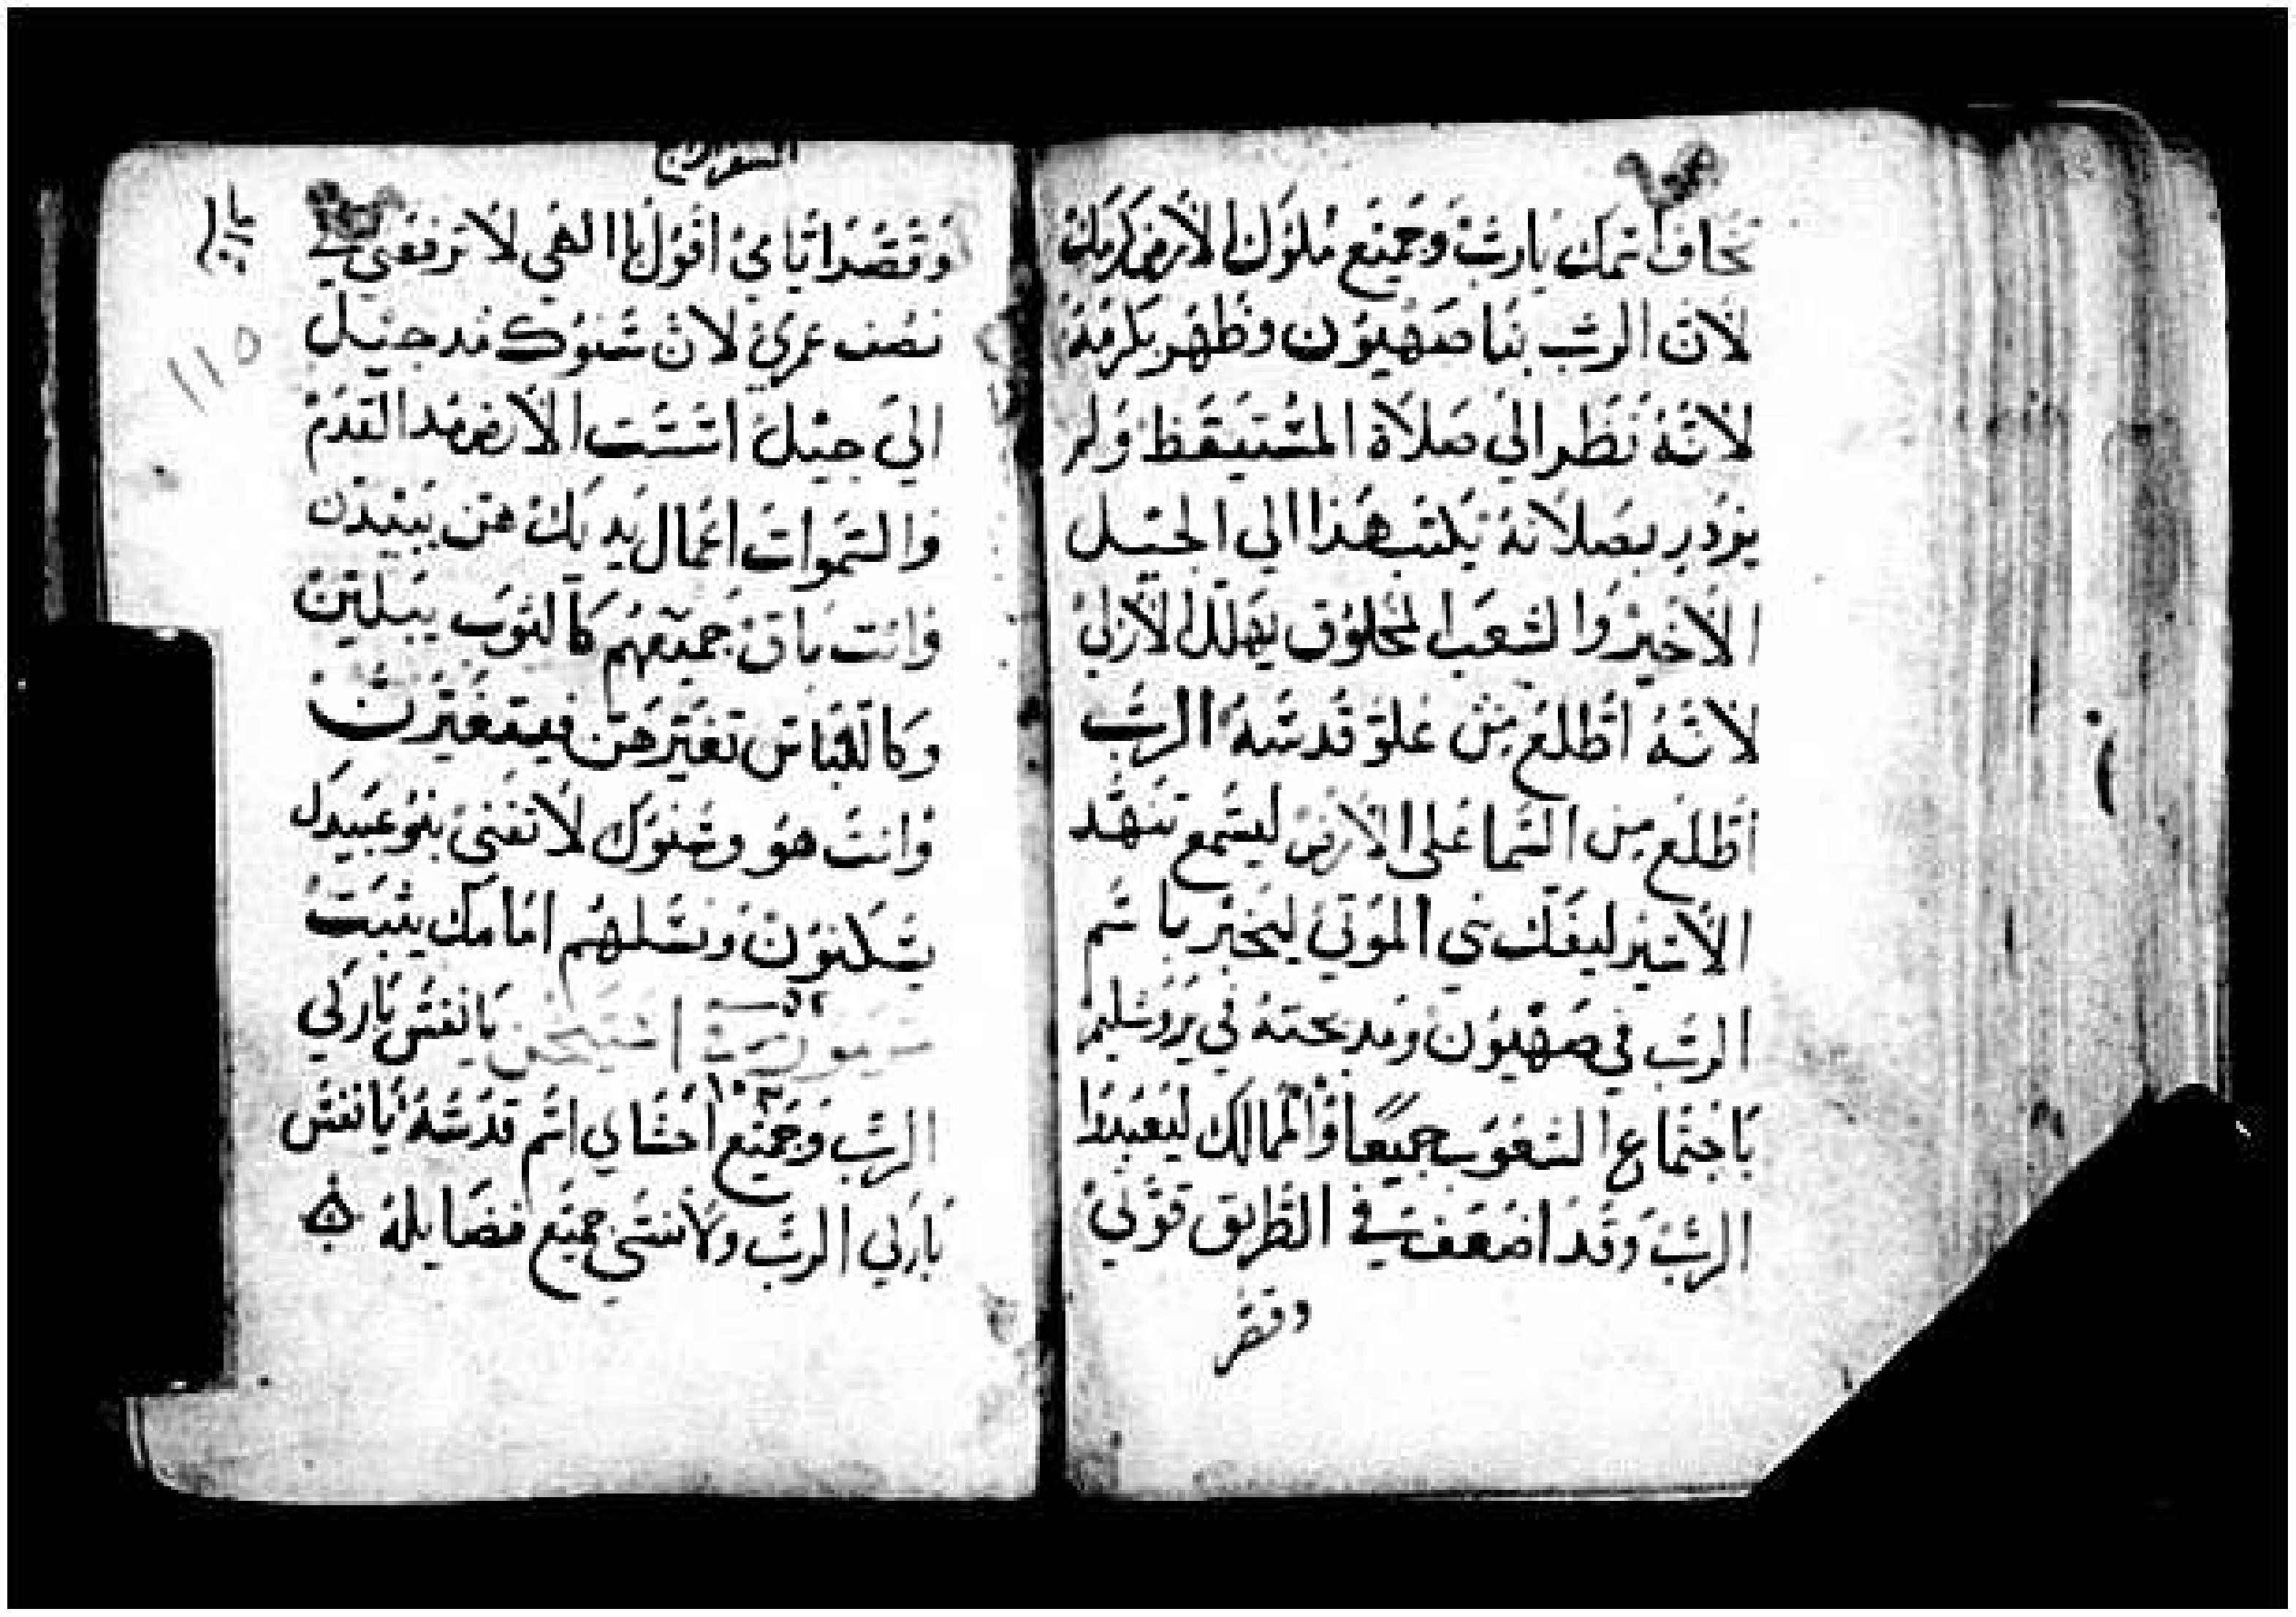 تخاف اسمك يارب وجميع ملوك الارض كرمك
لان الرب بنا صهيون وظهر بكرمه
لانه نظر الي صلاة المستيقظ ولم
يزدر بصلاته يكتب هذا الي الجيل
الاخير والشعب المخلوق يهلل للازلي
لانه اطلع من علو قدسه الرب
اطلع من السما على الارض ليسمع تنهد
الاسير ليفك بني الموتي ليخبر باسم
الرب في صهيون ومدبحته في يروشليم
باجتماع الشعوب جميعا والممالك ليعبدوا
الرب وقد اضعفت في الطريق قوتي
وقصر
السفر الرابع
وقصر اياي اقول يا الهي لا ترفعني في
نصف عمري لان سنوك من جيل
الي جيل اسست الارض مند القدم
والسموات اعمال يديك هن يبيدن
وانت باق جميعهم كالثوب يبلين
وكاللباس تغيرهن فيتغيرن
وانت هو وسنوك لا تفني بنو عبيدك
يسكنون ونسلهم امامك يثبت
يا نفس باركي
١٠٢
الرب وجميع احشاي اسم قدسه يا نفس
باركي الرب ولا تنسي جميع فضايله
110